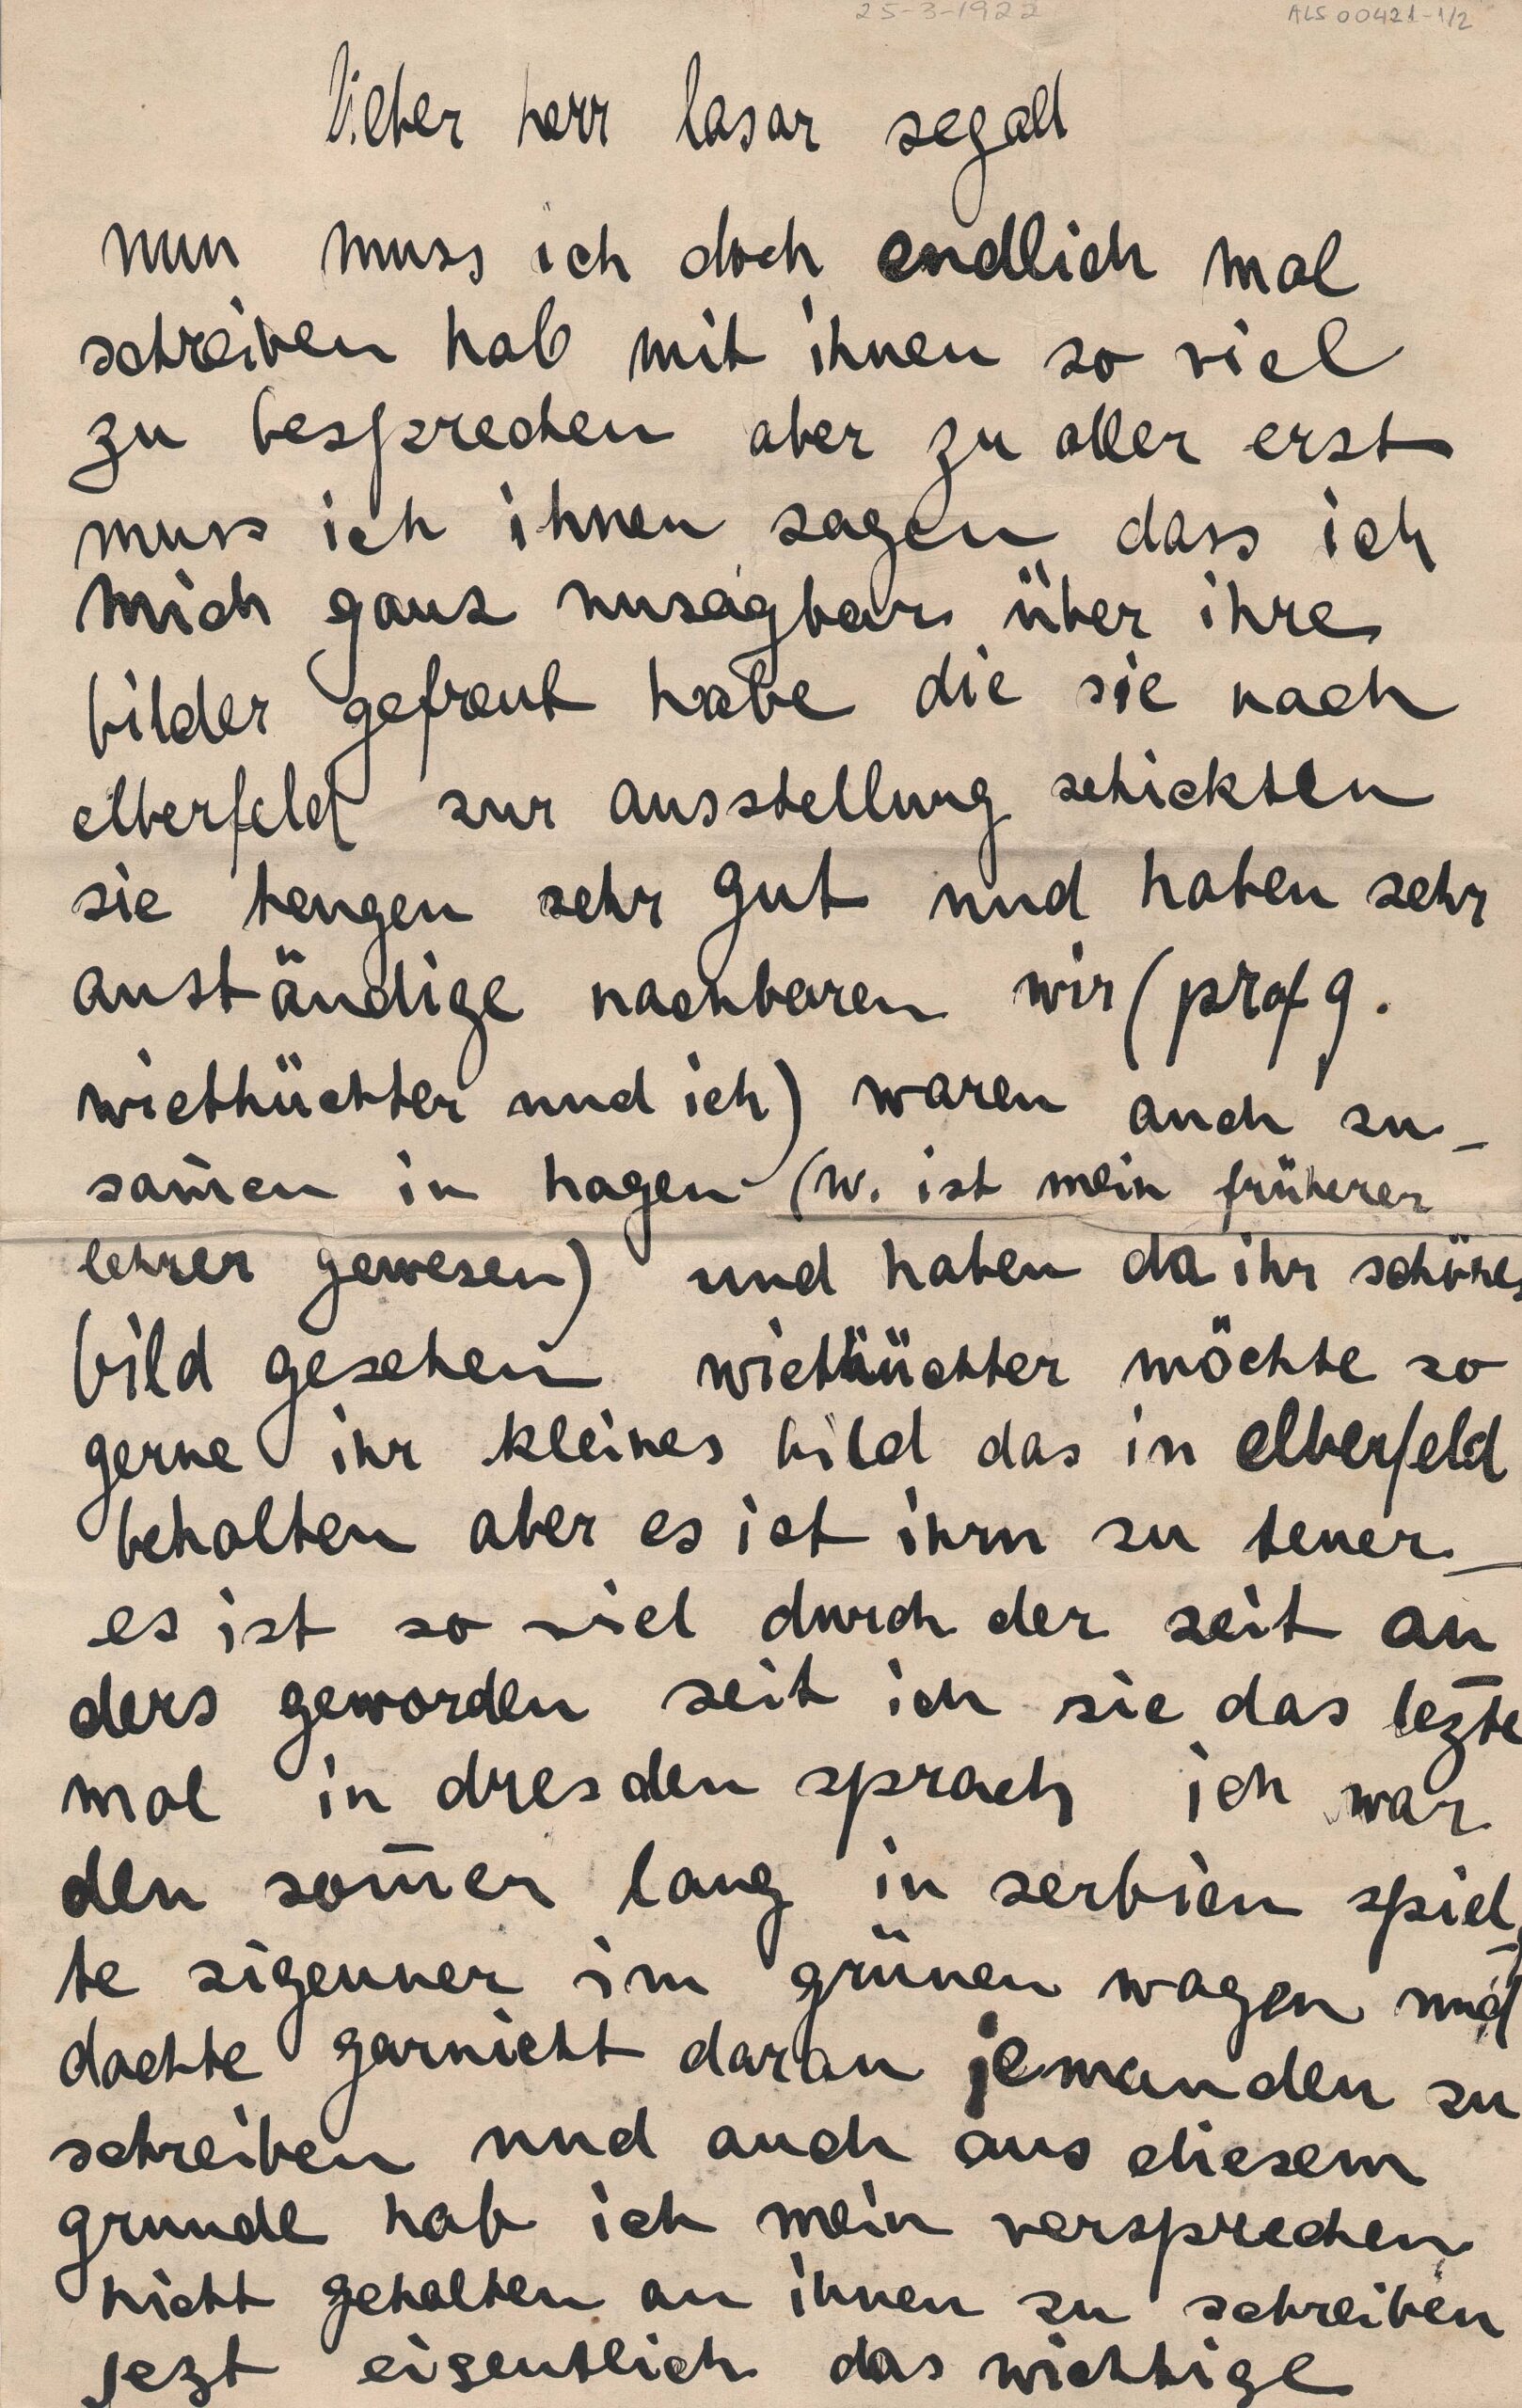 25-3-1922
ALS 00421-1/2
lieber herr lasar segall
nun muss ich doch endlich mal
schreiben hab mit ihnen so viel
zu besprechen aber zu aller erst
muss ich ihnen sagen dass ich
mich ganz unsagbar über ihre
bilder gefreut habe die sie nach
elberfeld zur ausstellung schickten
sie hengen sehr gut und haben sehr
anständige nachbaren wir (prof g.
wiethüchter und ich) waren auch zu-
sam̄en in hagen (w. ist mein früherer
lehrer gewesen) und haben da ihr schönes
bild gesehen wiethüchter möchte so
gerne ihr kleines bild das in elberfeld
behalten aber es ist ihm zu teuer_
es ist so viel durch der zeit an
ders geworden seit ich sie das lezte
mal in dresden sprach ich war
den som̄er lang in serbien spiel
te zigeuner im grünen wagen und
dachte garnicht daran jemanden zu
schreiben und auch aus diesem
grunde hab ich mein versprechen
nicht gehalten an ihnen zu schreiben
jezt eigentlich das wichtige